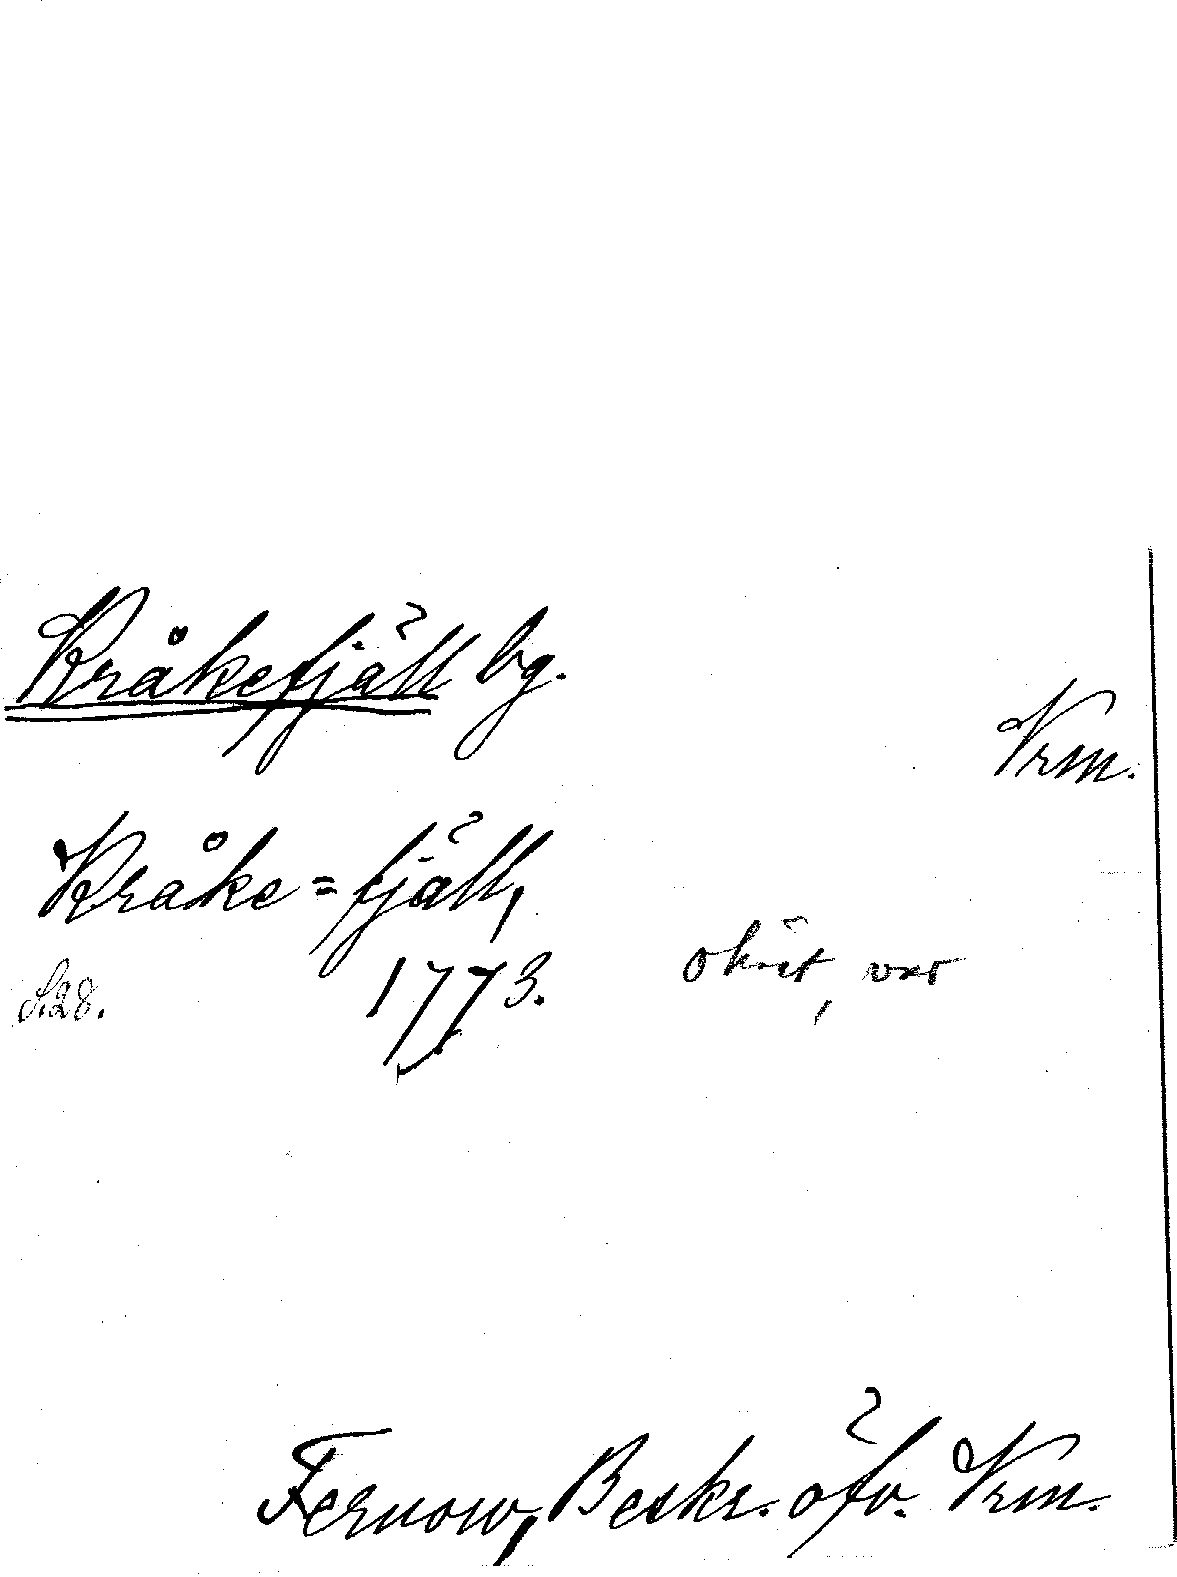 Kråkefjäll bg.
Vrm.
Kråke=fjäll,
1773. okänt, var
S.28.
Fernow, Beskr. öfv. Vrm.